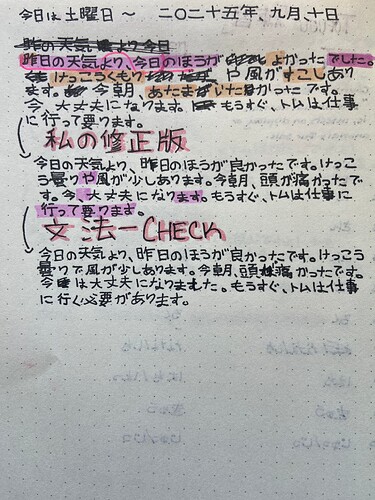 今日は土曜日〜 二〇二十五年、九月、十日
昨の天気より今日
昨日の天気より、今日のほうがよかったでした。
けっこうくもりや風がすこしあり
ます。今朝、あたまがいたかったです。
今、大丈夫になります。もうすぐ、トムは仕事
に行って要ります。
私の修正版
今日の天気より、昨日のほうが良かったです。けっこ
う曇りや風が少しあります。今朝、頭が痛かったで
す。今、大丈夫になります。もうすぐ、トムは仕事に
行って要ります。
文法ーCHECK
今日の天気より、昨日のほうが良かったです。けっこう
曇りで風が少しあります。今朝、頭痛かったです。
今は大丈夫になりました。もうすぐ、トムは仕事
に行く必要があります。